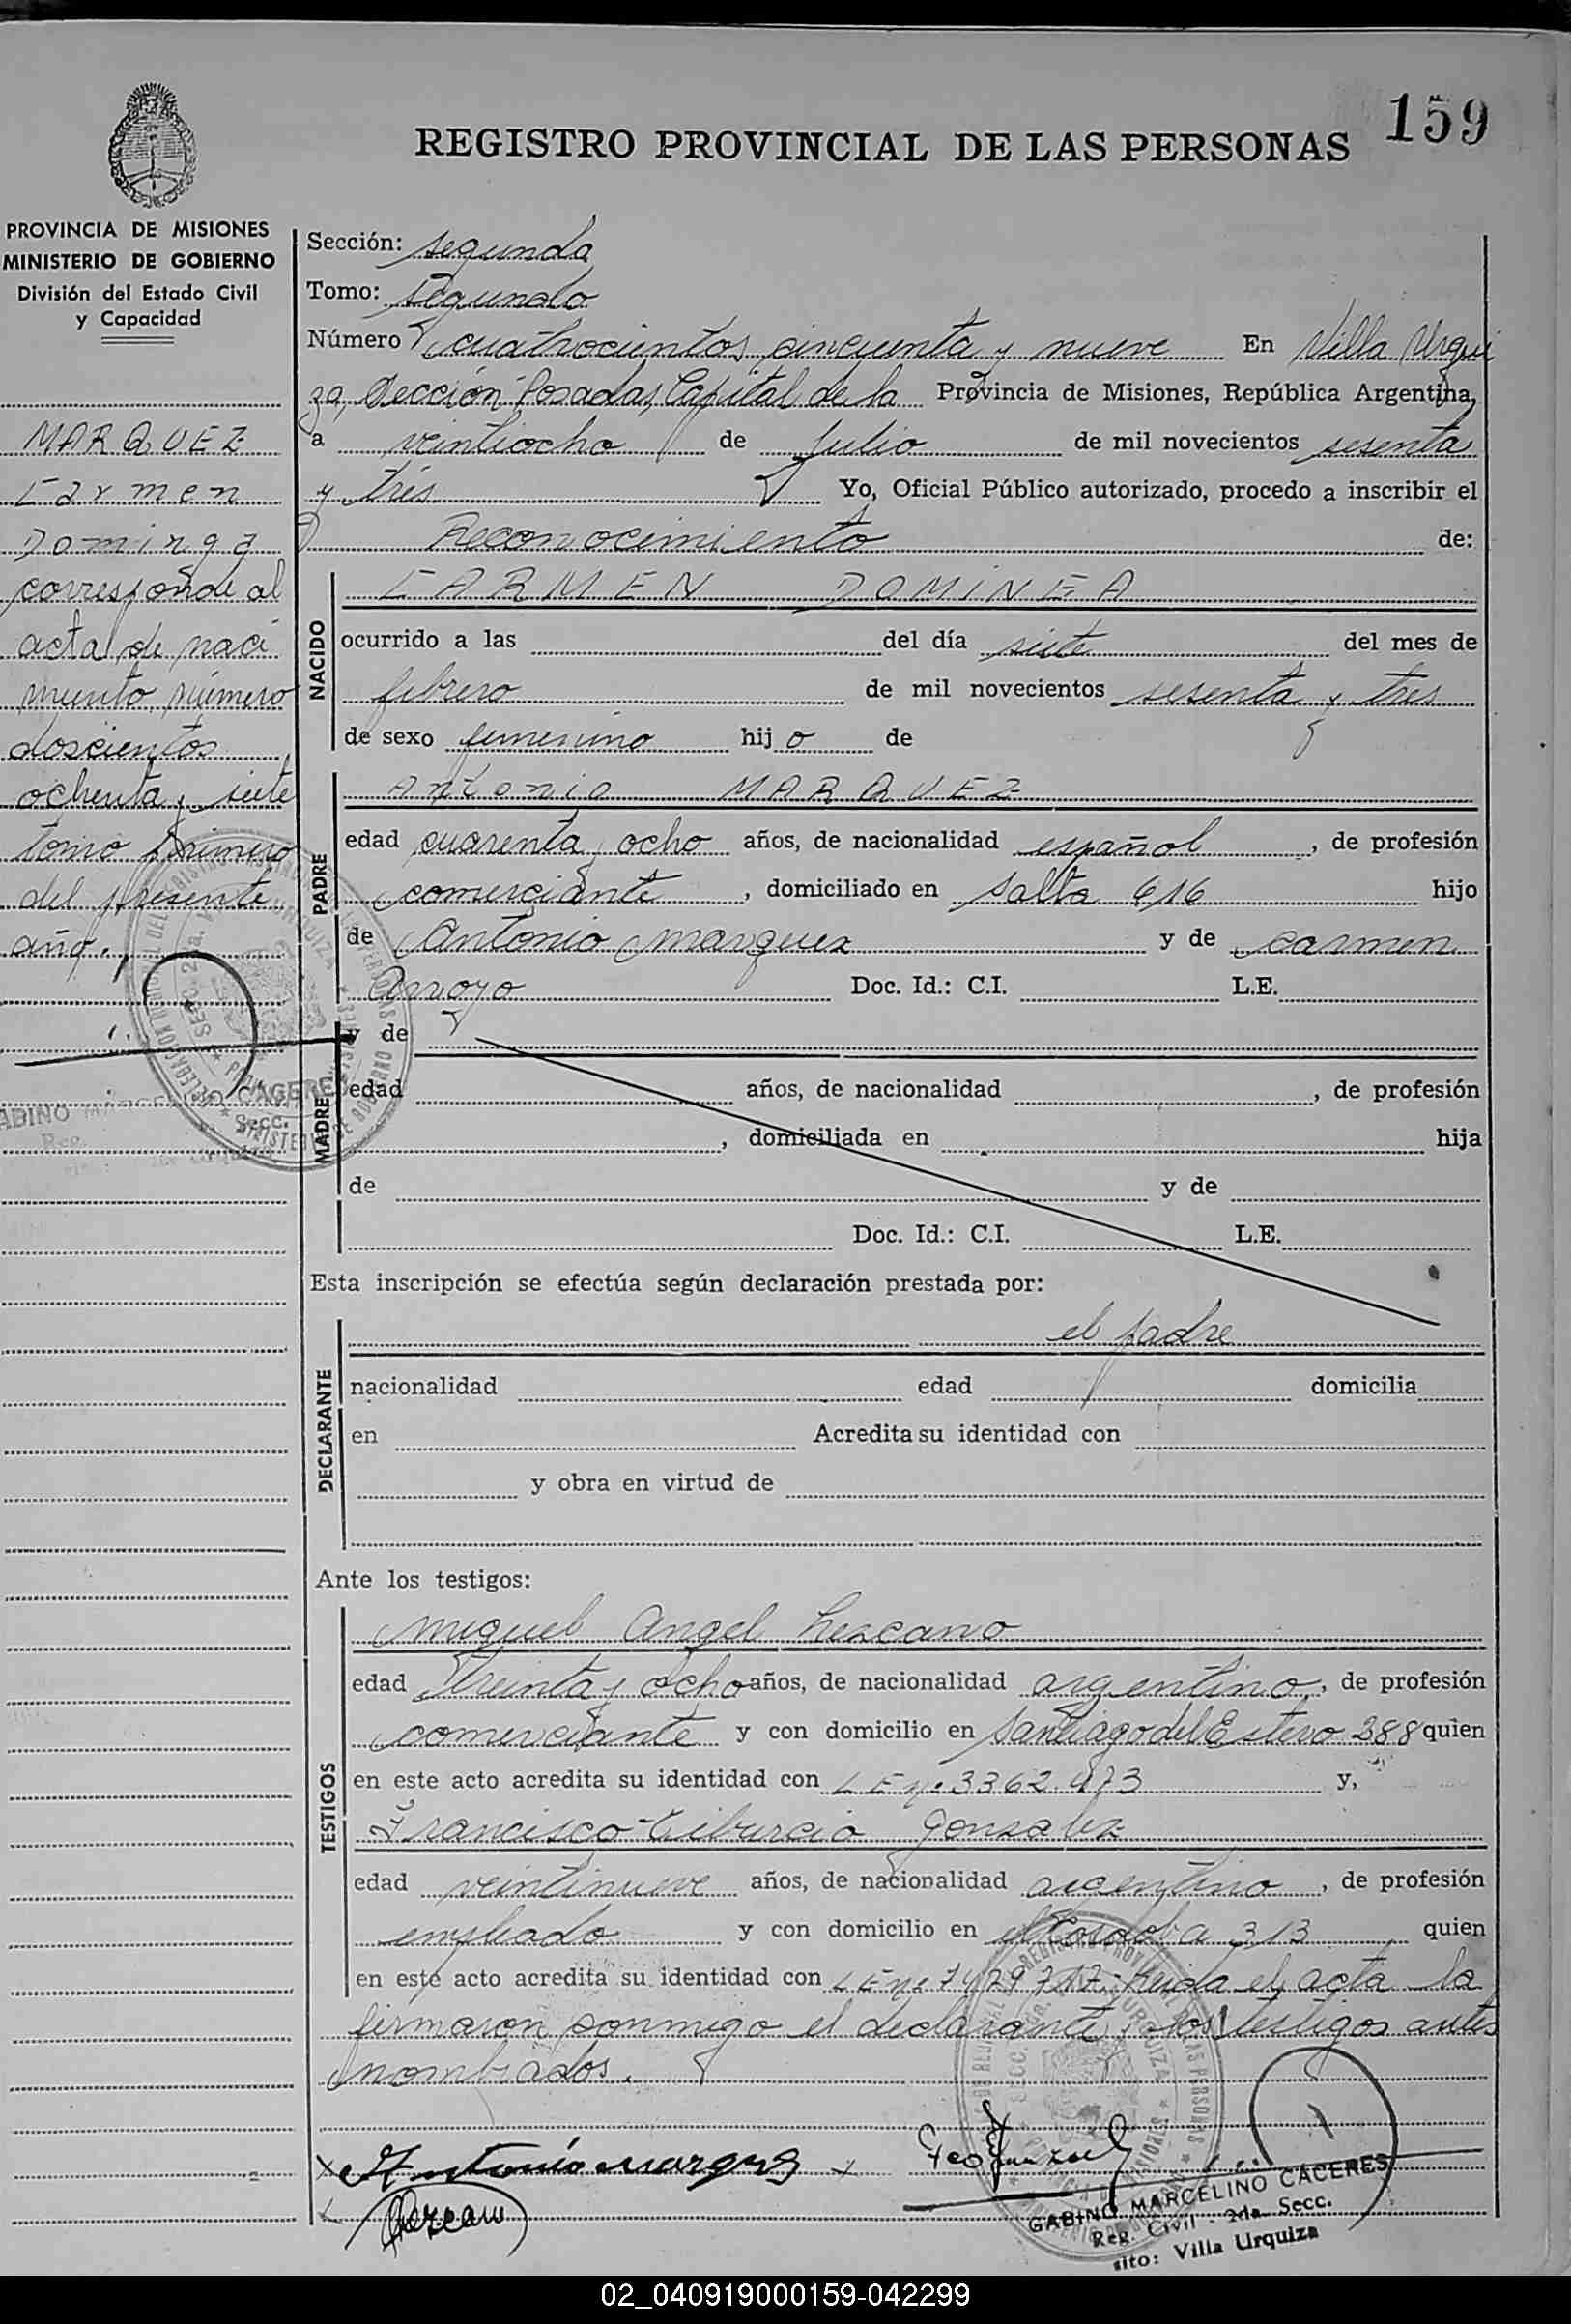 159
REGISTRO PROVINCIAL DE LAS PERSONAS
PROVINCIA DE MISIONES
MINISTERIO DE GOBIERNO
División del Estado Civil
y Capacidad
MARQUEZ
Carmen
Dominga
corresponde al
acta de naci
miento número
doscientos
ochenta y siete
tomo primero
del presente
año.
Sección: segunda
Tomo: segundo
Número cuatrocientos cincuenta y nueve En Villa Urqui
za, Sección Posadas, Capital de la Provincia de Misiones, República Argentina,
a veintiocho de Julio de mil novecientos sesenta
y tres Yo, Oficial Público autorizado, procedo a inscribir el
Reconocimiento de:
NACIDO
CARMEN DOMINGA
ocurrido a las del día siete del mes de
febrero de mil novecientos sesenta y tres
de sexo femenino hijo de
PADRE
Antonio MARQUEZ
edad cuarenta y ocho años, de nacionalidad español, de profesión
comerciante, domiciliado en Salta 616 hijo
de Antonio Marquez y de Carmen
Arroyo Doc. Id.: C.I. L.E.
MADRE
y de
edad años, de nacionalidad , de profesión
, domiciliada en hija
de y de
Doc. Id.: C.I. L.E.
Esta inscripción se efectúa según declaración prestada por:
DECLARANTE
el padre
nacionalidad edad domicilia
en Acredita su identidad con
y obra en virtud de
Ante los testigos:
TESTIGOS
Miguel Angel Lezcano
edad treinta y ocho años, de nacionalidad argentino, de profesión
comerciante y con domicilio en Santiago del Estero 388 quien
en este acto acredita su identidad con L E nº 3362.973 y,
Francisco Tiburcio Gonzalez
edad veintinueve años, de nacionalidad argentino, de profesión
empleado y con domicilio en Cordoba 313 quien
en este acto acredita su identidad con L E nº Leida el acta la
firmaron conmigo el declarante y los testigos antes
nombrados.
Antonio Marquez
Lezcano
GABINO MARCELINO CACERES
Reg. Civil - 2da. Secc.
sito: Villa Urquiza
02_040919000159-042299